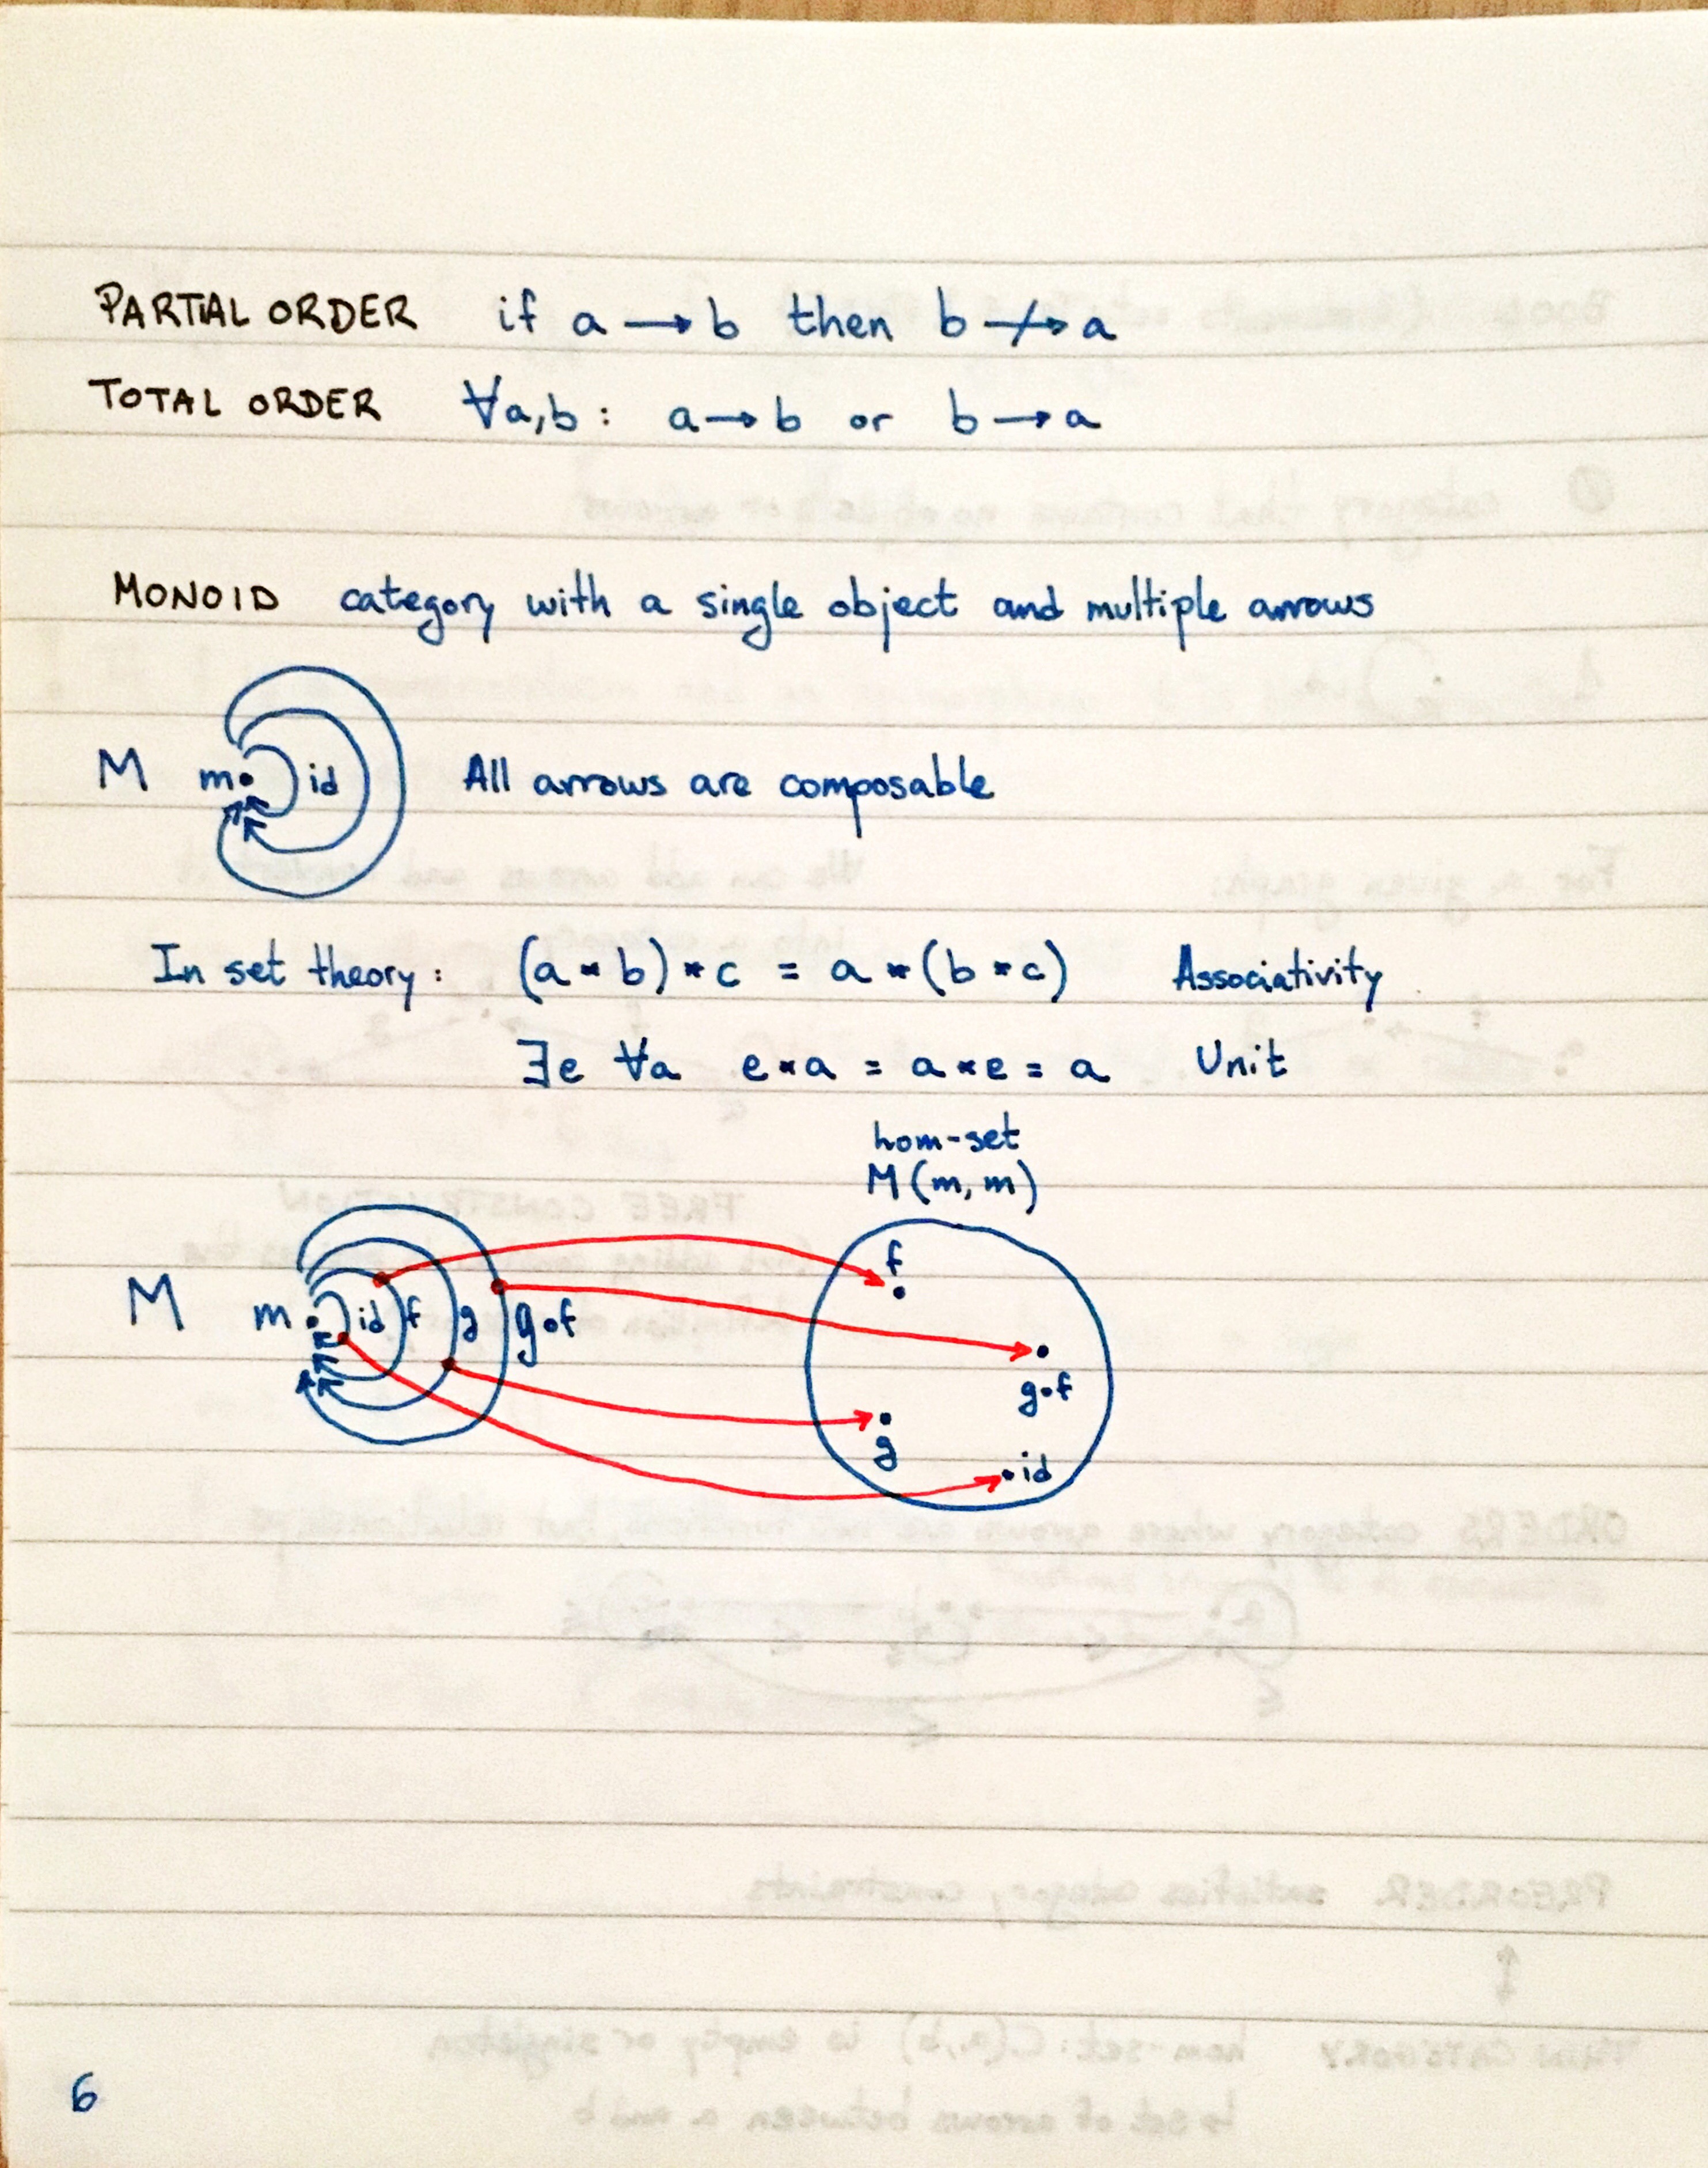 PARTIAL ORDER if a → b then b ↛ a
TOTAL ORDER ∀a,b: a → b or b → a
MONOID category with a single object and multiple arrows
M m id All arrows are composable
In set theory: (a * b) * c = a * (b * c) Associativity
∃e ∀a e * a = a * e = a Unit
hom-set
M(m, m)
f
M m id f g g∘f
g∘f
g
id
6